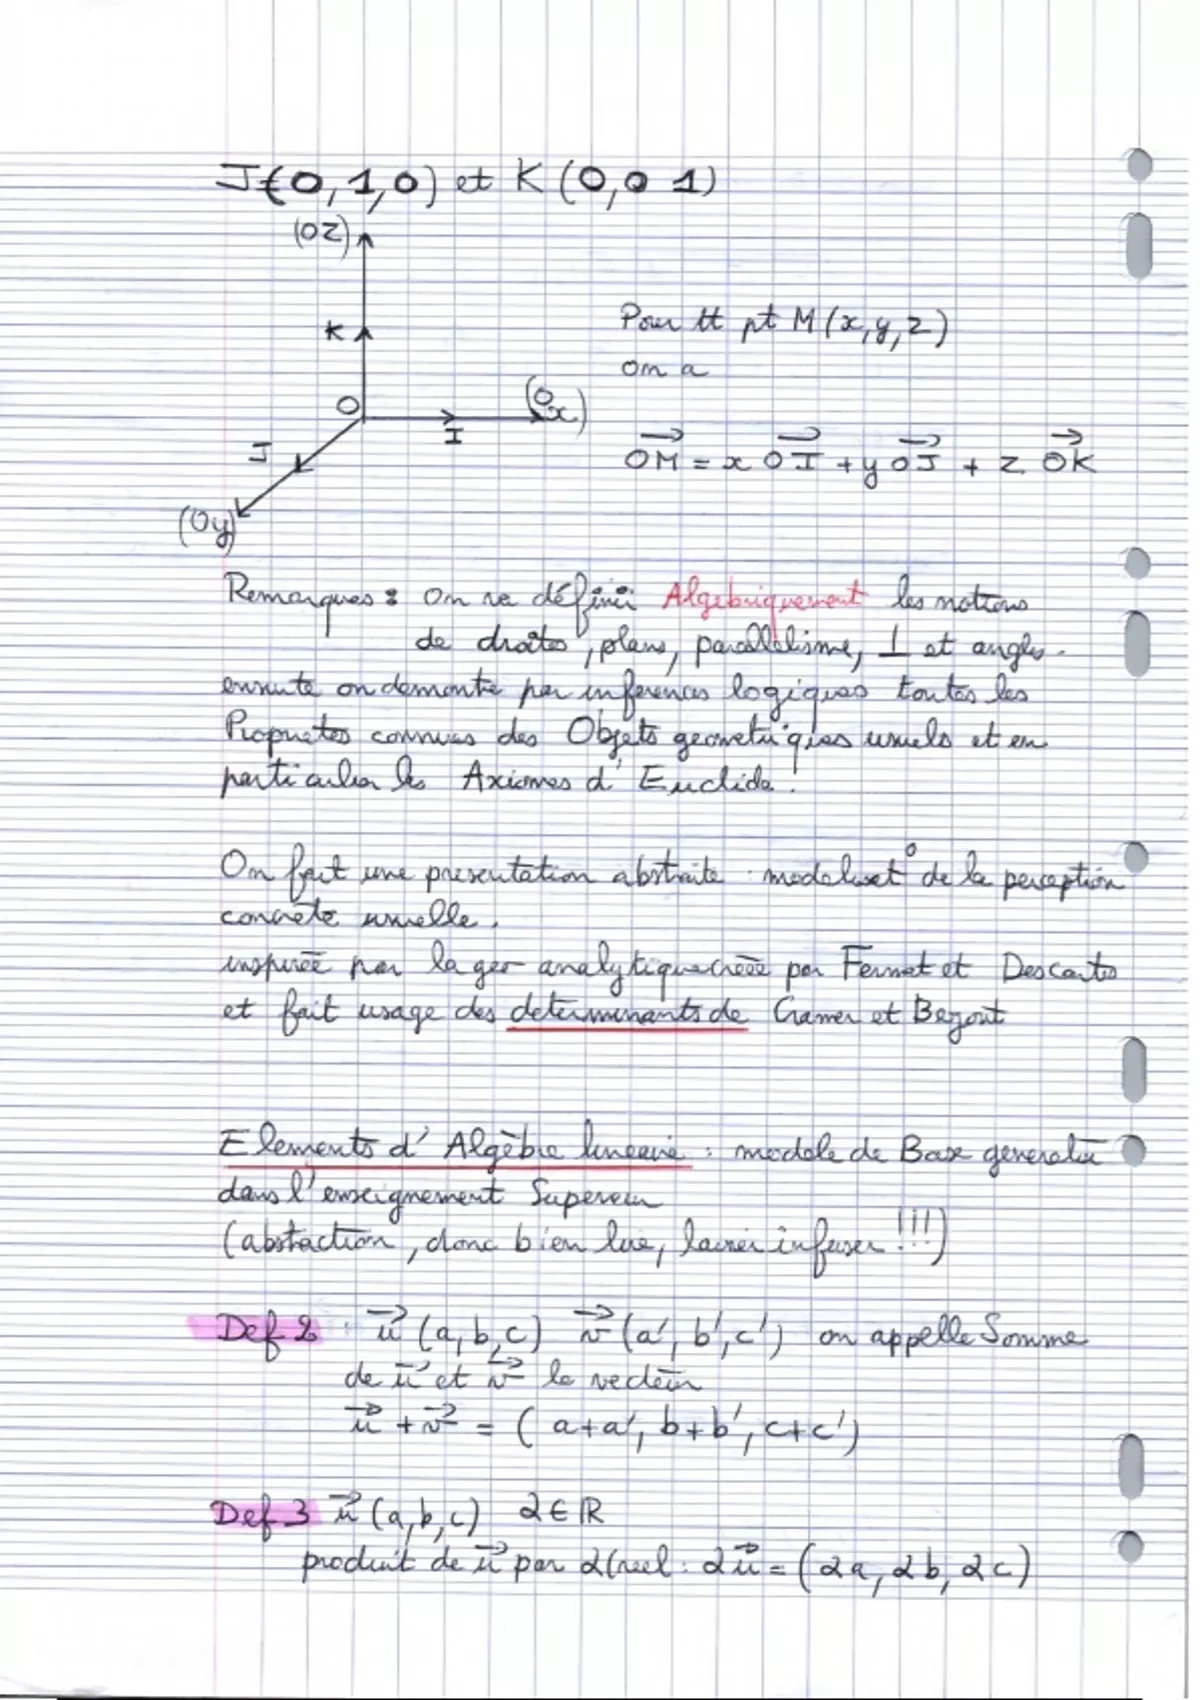 J(0,1,0) et K (0,0 1)
(OZ)
K
Pour tt pt M (x,y,z)
on a
O
(Ox)
I
J
OM = x OI + y OJ + z OK
(Oy)
Remarques : On va définir Algebriquement les notions
de droites, plans, parallélisme, ⊥ et angles.
ensuite on demontre par inferences logiques toutes les
Proprietes connues des Objets geometriques usuels et en
particulier les Axiomes d'Euclide !
On fait une presentation abstraite : modelisat° de la perception
concrète usuelle.
inspirée par la geo analytique créée par Fermat et Descartes
et fait usage des determinants de Cramer et Bezout
Elements d'Algèbre lineaire : modele de Base
dans l'enseignement Superieur
(abstraction, donc bien lire, laisser infuser !!!)
Def 2 : u (a,b,c) v (a', b', c') on appelle Somme
de u et v le vecteur
u + v = (a+a', b+b', c+c')
Def 3 u (a,b,c) α ∈ ℝ
produit de u par α (reel : αu = (αa, αb, αc)